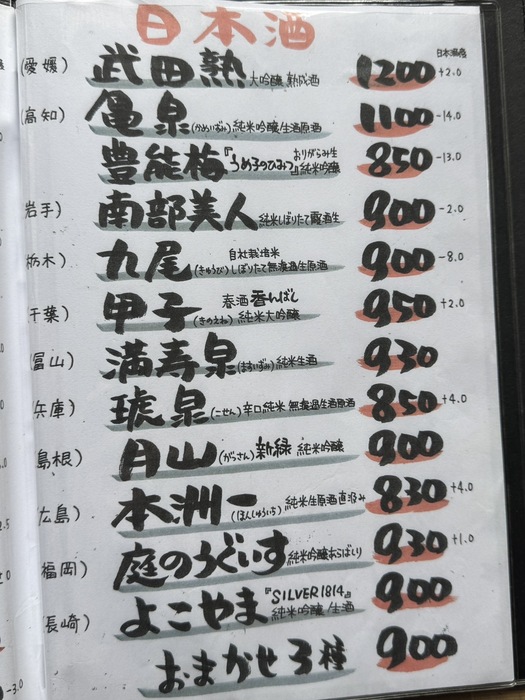 日本酒
日本酒度
(愛媛) 武田熟 大吟醸 熟成酒 1200 +2.0
(高知) 亀泉 (かめいずみ) 純米吟醸生酒原酒 1100 -14.0
豊能梅 『うめ子のひみつ』 おりがらみ生 純米吟醸 850 -13.0
岩手) 南部美人 純米しぼりたて 生 900 -2.0
栃木) 九尾 (きゅうび) 自社栽培米 しぼりたて無濾過生原酒 900 -8.0
千葉) 甲子 (きのえね) 春酒 香んばし 純米大吟醸 950 +2.0
(富山) 満寿泉 (ますいずみ) 純米生酒 930
兵庫) 琥泉 (こせん) 辛口純米 無濾過生酒原酒 850 +4.0
島根) 月山 (がっさん) 新緑 純米吟醸 900
広島) 本洲一 (ほんしゅういち) 純米生原酒直汲み 830 +4.0
福岡) 庭のうぐいす 純米吟醸あらばしり 930 +1.0
長崎) よこやま 『SILVER1814』 純米吟醸/生酒 900
おまかせ3種 900
2.5
-3.0